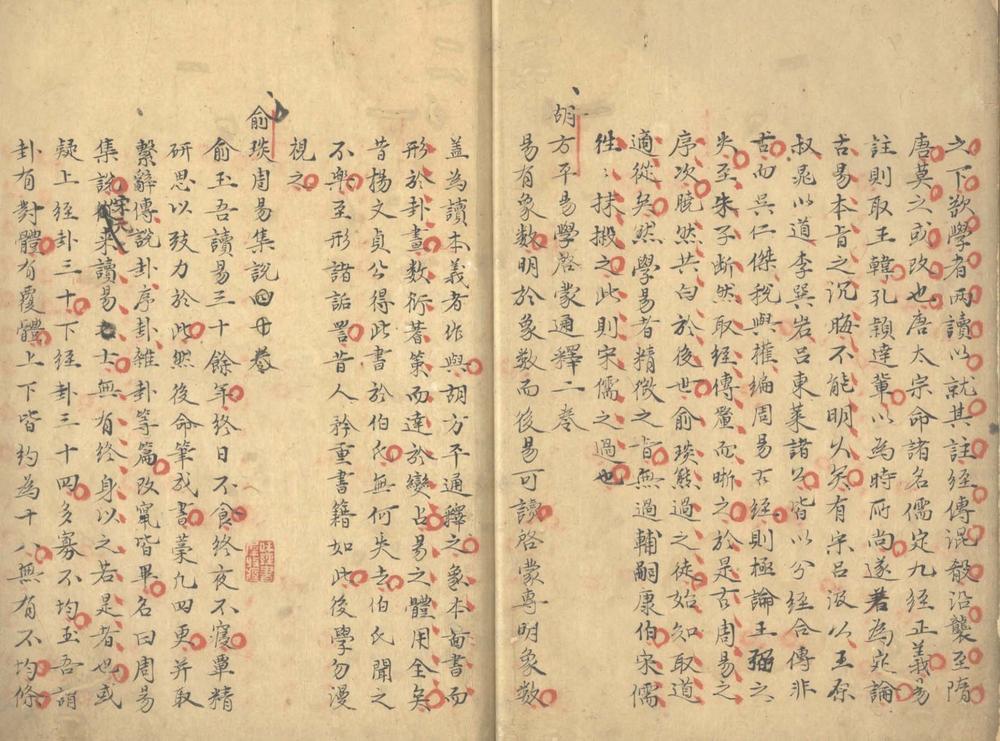 之下欲學者兩讀以就其註經傳混殽沿襲至隋
唐莫之或改也唐太宗命諸名儒定九經正義易
註則取王韓孔穎達輩以為時所尚遂著為定論
古易本旨之沉晦不能明久矣有宋呂汲以王原
叔晁以道李巽岩呂東萊諸公皆以分經合傳非
古而吳仁傑稅與權編周易古經則極論王弼之
失至朱子断然取經傳釐而晰之於是古周易之
序次晓然共白於後世俞琰熊過之徒始知取道
適從矣然學易者精微之旨無過輔嗣康伯宋儒
徃〻抹摋之此則宋儒之過也
胡方平易學啓蒙通釋二卷
易有象數明於象數而後易可讀啓蒙專明象數
蓋為讀本義者作與胡方平通釋之象本啚書而
形於卦畫数衍蓍策而達於變占易之體用全矣
昔揚文貞公得此書於伯氏無何失去伯氏聞之
不樂至形諸詬詈昔人矜重書籍如此後學勿漫
視之
俞琰周易集說四十卷
俞玉吾讀易三十餘年終日不食終夜不寢覃精
研思以致力於此然後命筆成書藁凡四更并取
繫辭傳說卦序卦雜卦等篇改竄皆畢名曰周易
集說宋天來讀易老士無有終身以之若是者也或
疑上經卦三十下經卦三十四多寡不均玉吾謂
卦有對體有覆體上下皆約為十八無有不均條